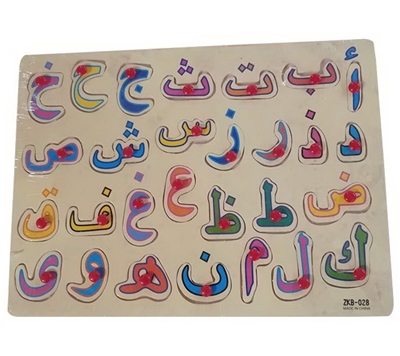 أ ب ت ث ج ح خ
د ذ ر ز س ش ص
ض ط ظ ع غ ف ق
ك ل م ن هـ و ي
ZKB-028
MADE IN CHINA